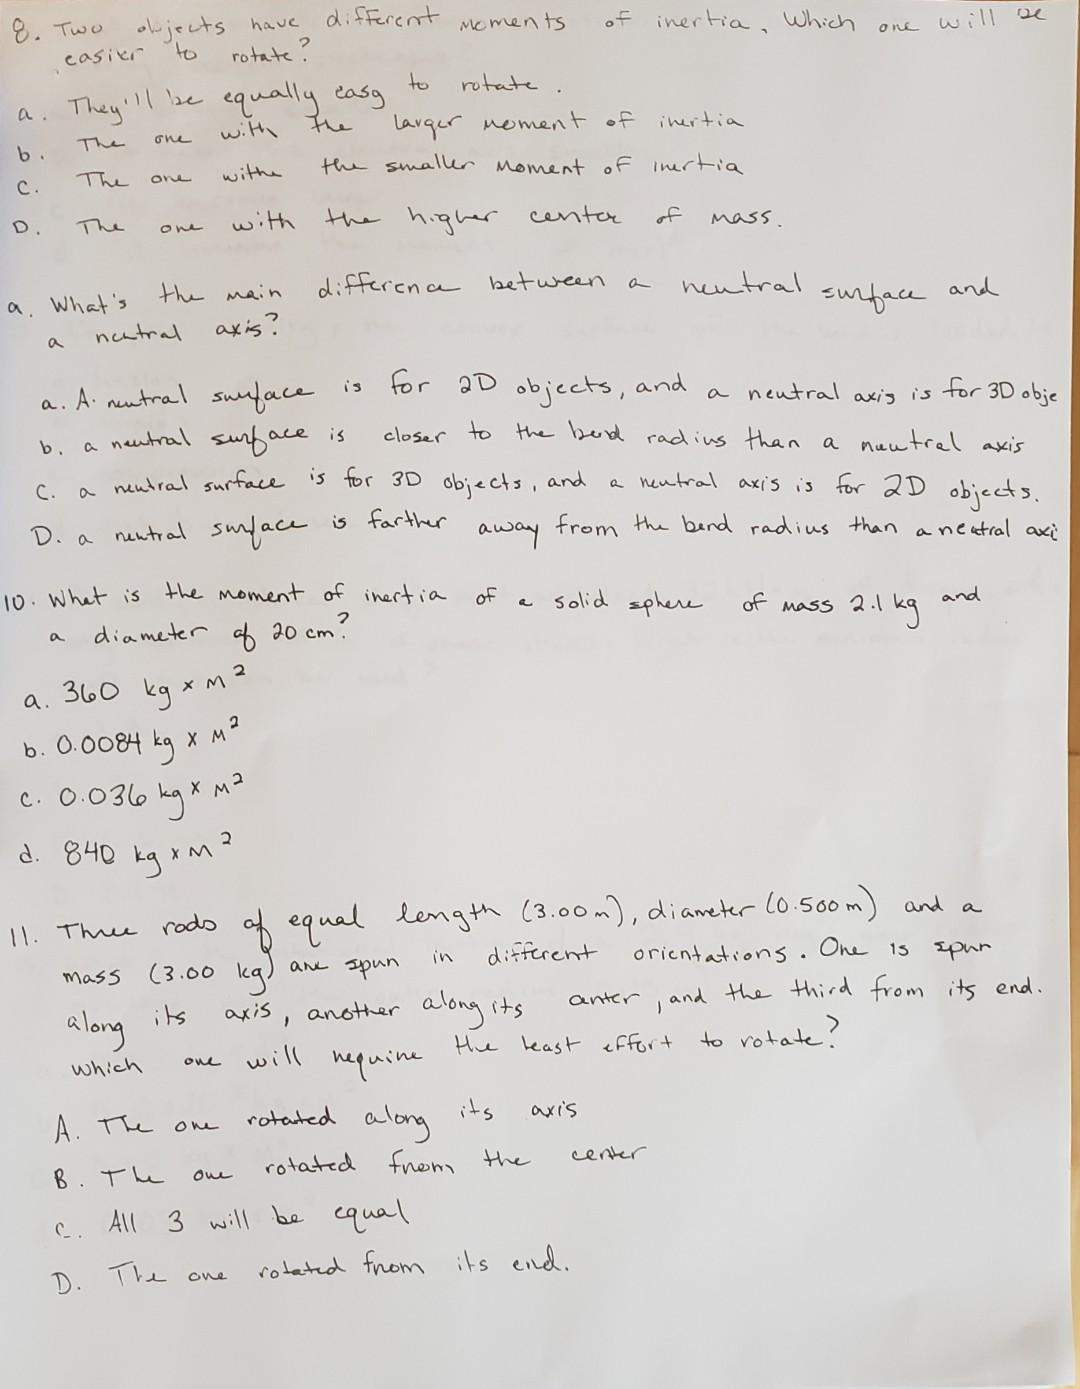 8. Two objects have different moments of inertia, Which one will be
easier to rotate?
a. They'll be equally easy to rotate.
b. The one with the larger moment of inertia
C. The one withe the smaller moment of inertia
D. The one with the higher center of mass.
9. What's the main difference between a neutral surface and
a neutral axis?
a. A. neutral surface is for 2D objects, and a neutral axis is for 3D obje
b. a neutral surface is closer to the bend radius than a neutral axis
C. a neutral surface is for 3D objects, and a neutral axis is for 2D objects.
D. a neutral surface is farther away from the bend radius than a neutral axi
10. What is the moment of inertia of a solid sphere of mass 2.1 kg and
a diameter of 20 cm?
a. 360 kg x m²
b. 0.0084 kg x M²
c. 0.036 kg x M²
d. 840 kg x m²
11. Three rods of equal length (3.00 m), diameter (0.500 m) and a
mass (3.00 kg) are spun in different orientations. One is spun
along its axis, another along its center, and the third from its end.
which one will require the least effort to rotate?
A. The one rotated along its axis
B. The one rotated from the center
C. All 3 will be equal
D. The one rotated from its end.